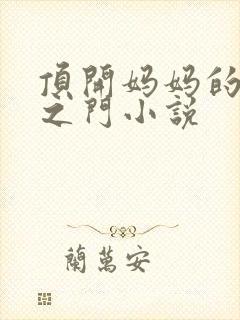 頂開妈妈的
之門小説
蘭萬安